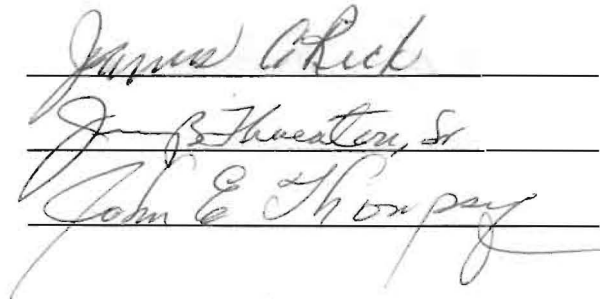 James A Rick
B. Thweaton, Sr
John E Thompson